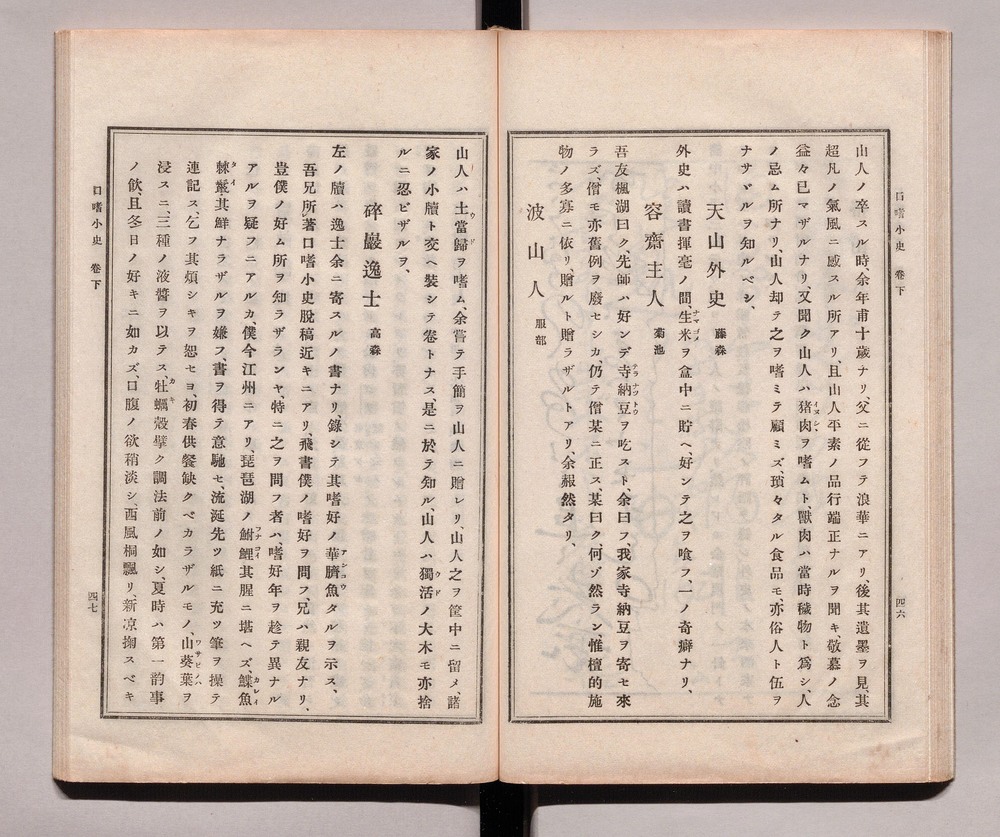 口嗜小史 卷下
四六
山人ノ卒スル時、余年甫十歲ナリ、父ニ從フテ浪華ニアリ、後其遺墨ヲ見、其
超凡ノ氣風ニ感スル所アリ、且山人平素ノ品行端正ナルヲ聞キ、敬慕ノ念
益々已マザルナリ、又聞ク山人ハ猪肉ヲ嗜ムト、獸肉ハ當時穢物ト爲シ、人
ノ忌ム所ナリ、山人却テ之ヲ嗜ミテ顧ミズ、瑣々タル食品モ、亦俗人ト伍ヲ
ナサヾルヲ知ルベシ、
天山外史 藤森
外史ハ讀書揮毫ノ間、生米ヲ盒中ニ貯ヘ、好ンテ之ヲ喰フ、一ノ奇癖ナリ、
容齋主人 菊池
吾友楓湖曰ク、先師ハ好ンデ寺納豆ヲ吃スト、余曰フ、我家寺納豆ヲ寄セ來
ラズ、僧モ亦舊例ヲ廢セシカ、仍テ僧某ニ正ス、某曰ク、何ゾ然ラン、惟檀的施
物ノ多寡ニ依リ、贈ルト贈ラザルトアリ、余赧然タリ、
波山人 服部
山人ハ土當歸ヲ嗜ム、余嘗テ手簡ヲ山人ニ贈レリ、山人之ヲ筐中ニ留メ、諸
家ノ小牘ト交ヘ裝シテ卷トナス、是ニ於テ知ル、山人ハ獨活ノ大木モ亦捨
ルニ忍ビザルヲ、
碎巖逸士 高森
左ノ牘ハ逸士余ニ寄スルノ書ナリ、錄シテ其嗜好ノ華臍魚タルヲ示ス、
吾兄所著口嗜小史脫稿近キニアリ、飛書僕ノ嗜好ヲ問フ、兄ハ親友ナリ、
豈僕ノ好ム所ヲ知ラザランヤ、特ニ之ヲ問フ者ハ、嗜好年ヲ趁テ異ナル
アルヲ疑フニアルカ、僕今江州ニアリ、琵琶湖ノ鮒鯉其腥ニ堪ヘズ、鰈魚
棘鬣、其鮮ナラザルヲ嫌フ、書ヲ得テ意馳セ、流涎先ツ紙ニ充ツ、筆ヲ操テ
連記ス、乞フ其煩シキヲ恕セヨ、初春供餐缺クベカラザルモノ、山葵葉ヲ
浸スニ、三種ノ液醬ヲ以テス、牡蠣殼擘ク調法前ノ如シ、夏時ハ第一韵事
ノ飮、且冬日ノ好キニ如カズ、口腹ノ欲稍淡シ、西風桐飄リ、新凉掬スベキ
口嗜小史 卷下
四七